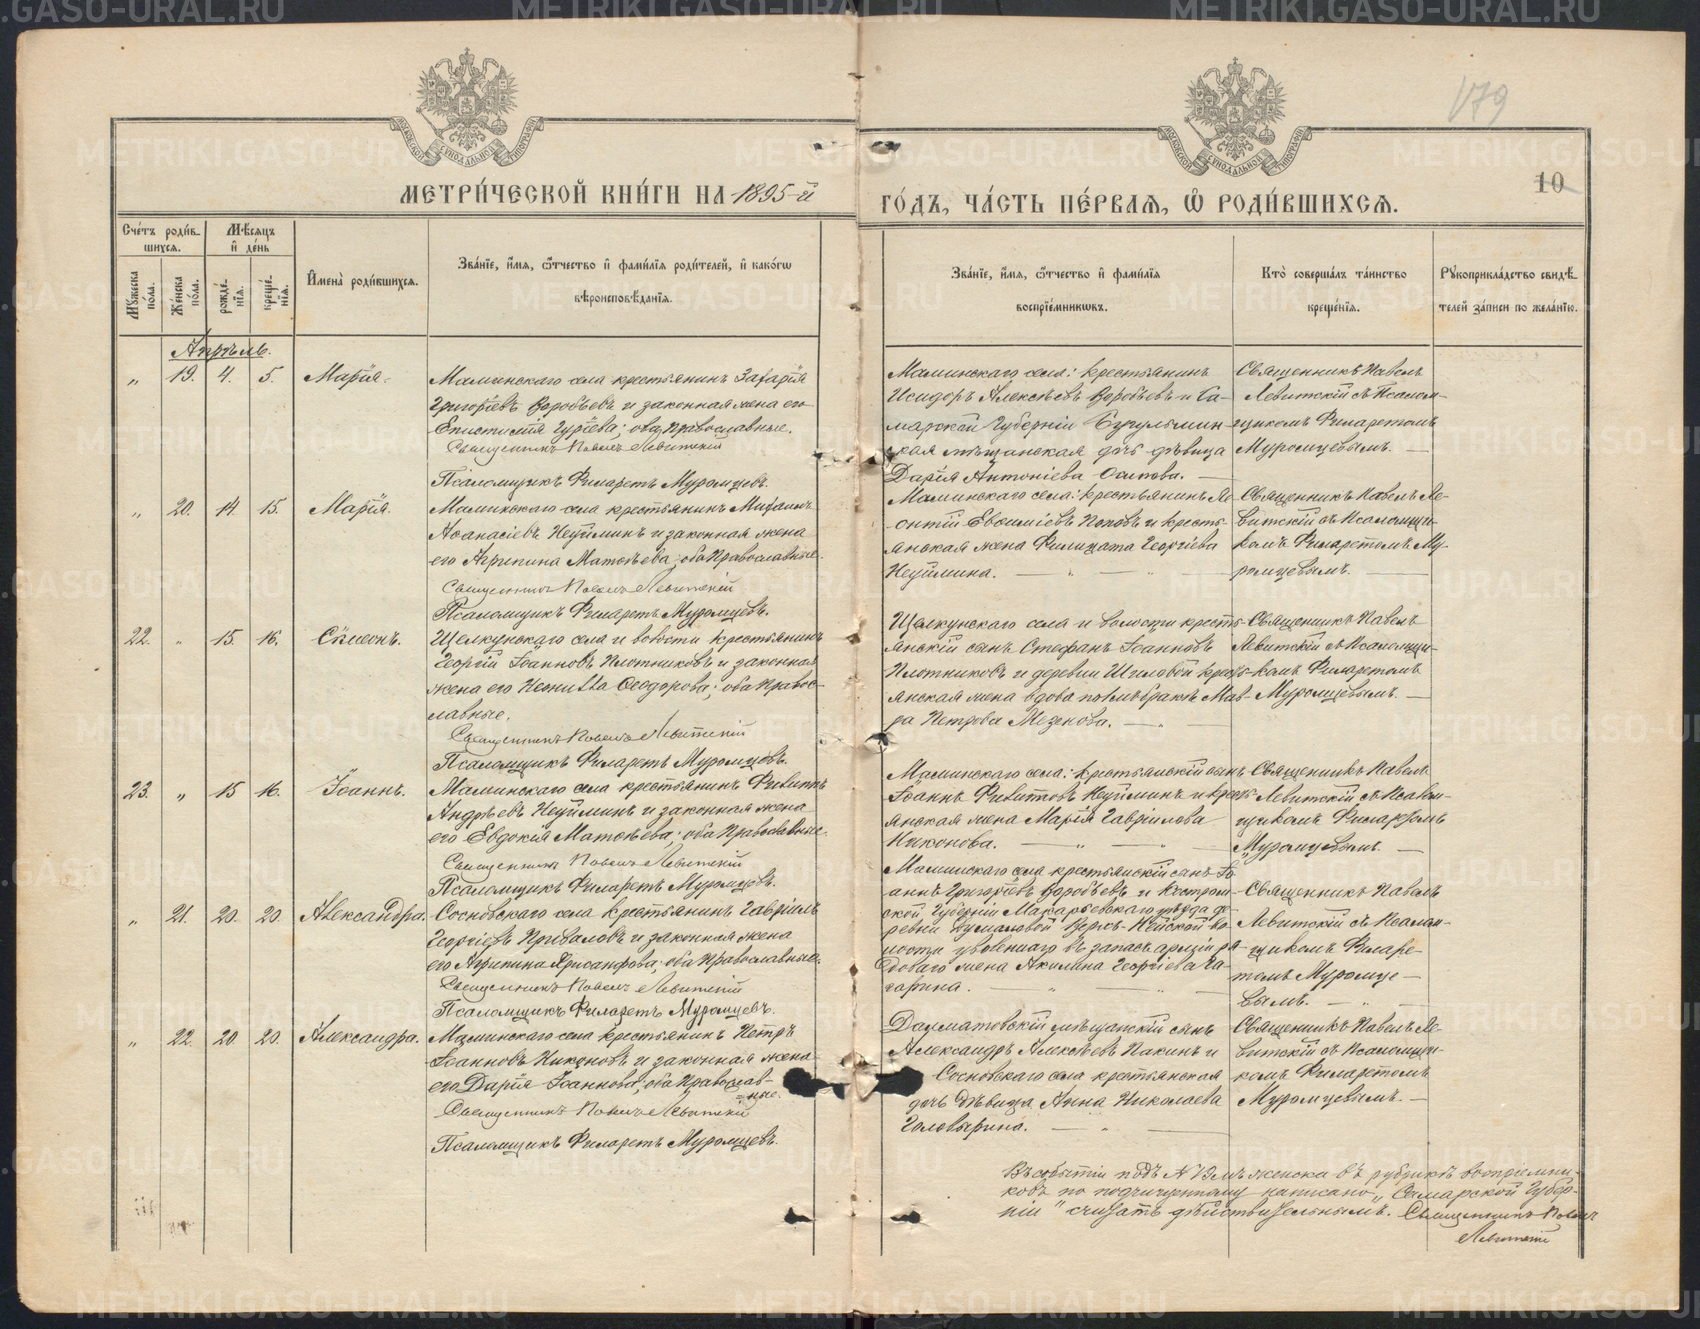 179
10
МЕТРИ́ЧЕСКОЙ КНИ́ГИ НА 1895-й
ГО́ДЪ, ЧА́СТЬ ПЕ́РВАѦ, Ѡ҆ РОДИ́ВШИХСѦ.
Сче́тъ роди́в-
шихсѧ.
Мѣ́сѧцъ
и҆ де́нь
Мꙋ́жеска
по́ла.
Же́нска
по́ла.
рожде́-
нїѧ.
креще́-
нїѧ.
И҆мена̀ роди́вшихсѧ.
Зва́нїе, и҆́мѧ, ѻ҆́тчество и҆ фами́лїѧ роди́телей, и҆ како́гѡ
вѣроисповѣ́данїѧ.
Зва́нїе, и҆́мѧ, ѻ҆́тчество и҆ фами́лїѧ
воспрїе́мникѡвъ.
Кто̀ соверша́лъ та́инство
креще́нїѧ.
Рꙋкоприкла́дство свидѣ́-
телей за́писи по жела́нїю.
Апрѣль.
„ 19. 4. 5. Марія.
Маминскаго села крестьянинъ Захарія
Григоріевъ Воробьевъ и законная жена его
Епистимія Гуріева; оба православные.
Священникъ Павелъ Левитскій
Псаломщикъ Филаретъ Муромцевъ.
Маминскаго села: крестьянинъ
Исидоръ Алексѣевъ Воробьевъ и Са-
марской Губерніи Бугульмин-
ская мѣщанская дочь дѣвица
Дарія Антоніева Осипова.
Священникъ Павелъ
Левитскій съ Псалом-
щикомъ Филаретомъ
Муромцевымъ.
„ 20. 14. 15. Марія.
Маминскаго села крестьянинъ Михаилъ
Аѳанасіевъ Неуйминъ и законная жена
его Агрипина Матѳѣева; оба православные.
Священникъ Павелъ Левитскій
Псаломщикъ Филаретъ Муромцевъ.
Маминскаго села: крестьянинъ Ле-
онтій Евѳиміевъ Поповъ и кресть-
янская жена Филицата Георгіева
Неуймина.
Священникъ Павелъ Ле-
витскій съ Псаломщи-
комъ Филаретомъ Му-
ромцевымъ.
22. „ 15. 16. Сѵмеонъ.
Щелкунскаго села и волости крестьянинъ
Георгій Іоанновъ Плотниковъ и законная
жена его Неонилла Ѳеодорова; оба право-
славные.
Священникъ Павелъ Левитскій
Псаломщикъ Филаретъ Муромцевъ.
Щелкунскаго села и волости кресть-
янскій сынъ Стефанъ Іоанновъ
Плотниковъ и деревни Шиловой кресть-
янская жена вдова по 1мъ бракѣ Мав-
ра Петрова Мезенова.
Священникъ Павелъ
Левитскій съ Псаломщи-
комъ Филаретомъ
Муромцевымъ.
23. „ 15 16. Іоаннъ.
Маминскаго села крестьянинъ Фивитъ
Андрѣевъ Неуйминъ и законная жена
его Евдокія Матѳѣева; оба православные.
Священникъ Павелъ Левитскій
Псаломщикъ Филаретъ Муромцевъ.
Маминскаго села: крестьянскій сынъ
Іоаннъ Фивитовъ Неуйминъ и кресть-
янская жена Марія Гавріилова
Никонова.
Священникъ Павелъ
Левитскій съ Псалом-
щикомъ Филаретомъ
Муромцевымъ.
„ 21. 20. 20 Александра.
Сосновскаго села крестьянинъ Гавріилъ
Георгіевъ Приваловъ и законная жена
его Агрипина Хрисанфова; оба православные.
Священникъ Павелъ Левитскій
Псаломщикъ Филаретъ Муромцевъ.
Маминскаго села крестьянскій сынъ Іо-
аннъ Григоріевъ Воробьевъ и Костром-
ской Губерніи Макарьевскаго уѣзда де-
ревни Верхъ-Нейской во-
лости уволеннаго въ запасъ арміи ря-
доваго жена Акилина Георгіева Га-
гарина.
Священникъ Павелъ
Левитскій съ Псалом-
щикомъ Филаре-
томъ Муромце-
вымъ.
„ 22. 20 20. Александра.
Маминскаго села крестьянинъ Петръ
Іоанновъ Никоновъ и законная жена
его Дарія Іоаннова; оба православ-
ные.
Священникъ Павелъ Левитскій
Псаломщикъ Филаретъ Муромцевъ.
Далматовскій мѣщанскій сынъ
Александръ Алексѣевъ Пакинъ и
Сосновскаго села крестьянская
дочь дѣвица Анна Николаева
Головырина.
Священникъ Павелъ Ле-
витскій съ Псаломщи-
комъ Филаретомъ
Муромцевымъ.
Въ событіи подъ № 19мъ женска въ рубрикѣ воспріемни-
ковъ по подчищенному написано „Самарской Губер-
ніи“ считать дѣйствительнымъ. Священникъ Павелъ
Левитскій
METRIKI.GASO-URAL.RU